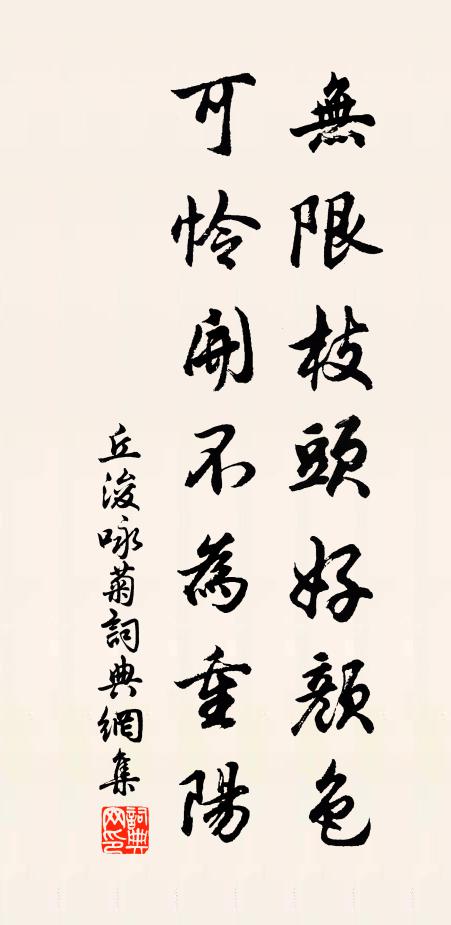 無限枝頭好顏色
可憐開不為重陽
丘浚咏菊詞典網集
詞典網印